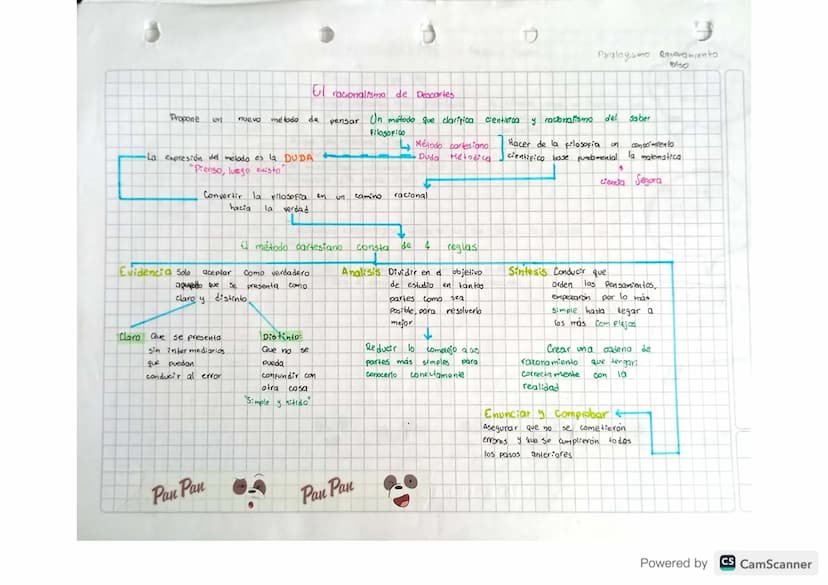 Paralogismo Razonamiento
falso
El racionalismo de Descartes
Propone un nuevo método de pensar Un método que clarifica cientifica y racionalismo del saber
filosofico
Método cartesiano
Duda Metodica
Hacer de la filosofia un conocimiento
cientifico base fundamental la matematica
ciencia Segura
La expresión del metodo es la DUDA
"Pienso, luego existo"
Convertir la filosofia en un camino racional
hacia la verdad
El método cartesiano consta de 4 reglas
Evidencia Solo aceptar como verdadero
aquello que se presenta como
claro y distinto
Claro: Que se presenta
sin intermediarios
que puedan
conducir al error
Distinto:
Que no se
pueda
confundir con
otra cosa
"Simple y nitido"
Analisis Dividir en el objetivo
de estudio en tantas
partes como sea
Posible, para resolverlo
mejor
Reducir lo complejo a sus
partes más simples, para
conocerlo correctamente
Sintesis Conducir que
orden los Pensamientos,
empezaron por lo más
simple hasta llegar a
los más complejos
Crear una cadena de
razonamiento que tengar:
correctamente con la
realidad
Enunciar y Comprobar
Asegurar que no se cometieron
errores y que se cumplieron todos
los pasos anteriores
Pan Pan
Pan Pan
Powered by CS CamScanner